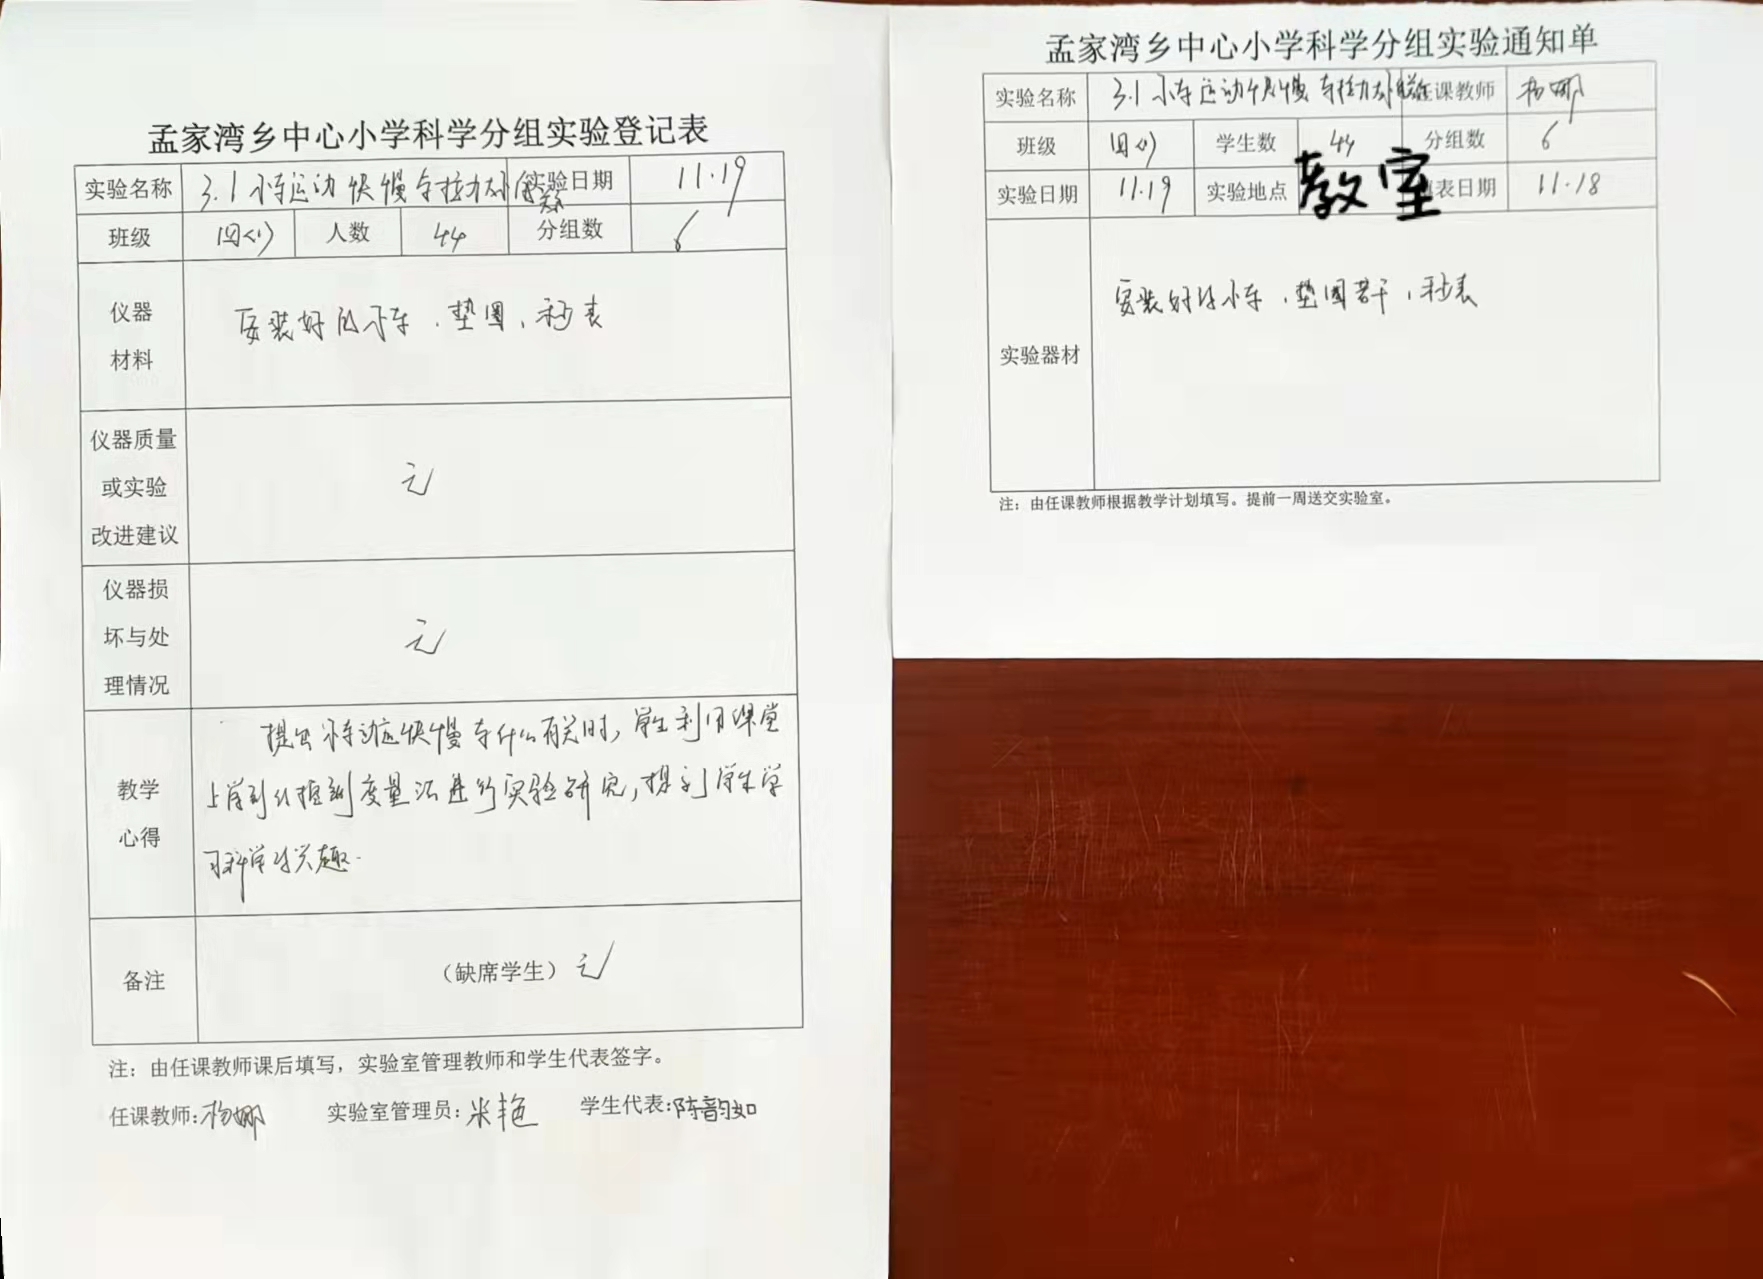 孟家湾乡中心小学科学分组实验登记表
实验名称 3.1小车运动快慢与拉力大小关系 实验日期 11.19
班级 四(1) 人数 44 分组数 6
仪器
材料
安装好的小车、垫圈、秒表
仪器质量
或实验
改进建议
无
仪器损
坏与处
理情况
无
教学
心得
提出小车动运快慢与什么有关时,学生利用课堂
上学到的控制度量法进行实验研究,提高学生学
习科学的兴趣.
备注 (缺席学生) 无
注：由任课教师课后填写，实验室管理教师和学生代表签字。
任课教师:杨娜 实验室管理员:米艳 学生代表:陈韵如
孟家湾乡中心小学科学分组实验通知单
实验名称 3.1小车运动快慢与拉力大小 任课教师 杨娜
班级 四(1) 学生数 44 分组数 6
实验日期 11.19 实验地点 教室 填表日期 11.18
实验器材
安装好的小车、垫圈若干、秒表
注：由任课教师根据教学计划填写。提前一周送交实验室。